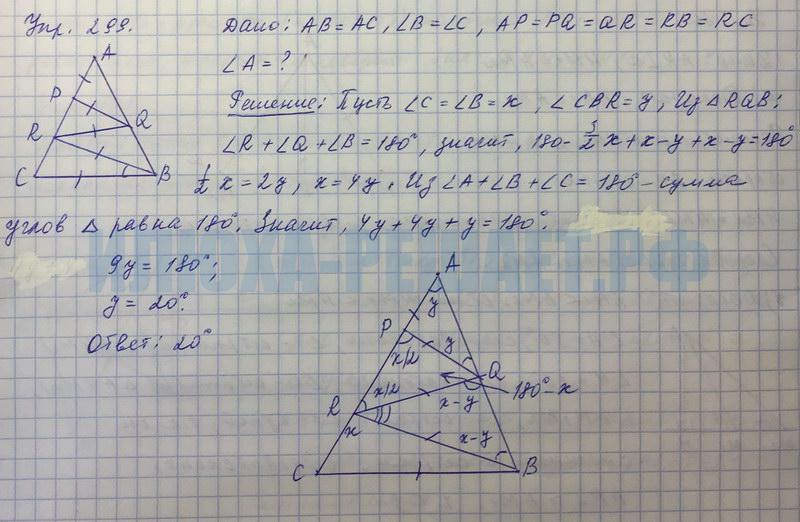 Упр. 299.
Дано: AB = AC, ∠B = ∠C, AP = PQ = QR = RB = RC
∠A = ?
Решение: Пусть ∠C = ∠B = x, ∠CBR = y, Из △RQB:
∠R + ∠Q + ∠B = 180°, значит, 180 - 3/2 x + x - y + x - y = 180°
1/2 x = 2y, x = 4y. Из ∠A + ∠B + ∠C = 180° - сумма
углов △ равна 180°. Значит, 4y + 4y + y = 180°.
9y = 180°;
y = 20°.
Ответ: 20°
A
P
R
Q
C
B
A
y
P
y
x/2
Q
x/2
180° - x
R
x - y
x
x - y
C
B
ИЛЮХА-РЕШАЕТ.РФ